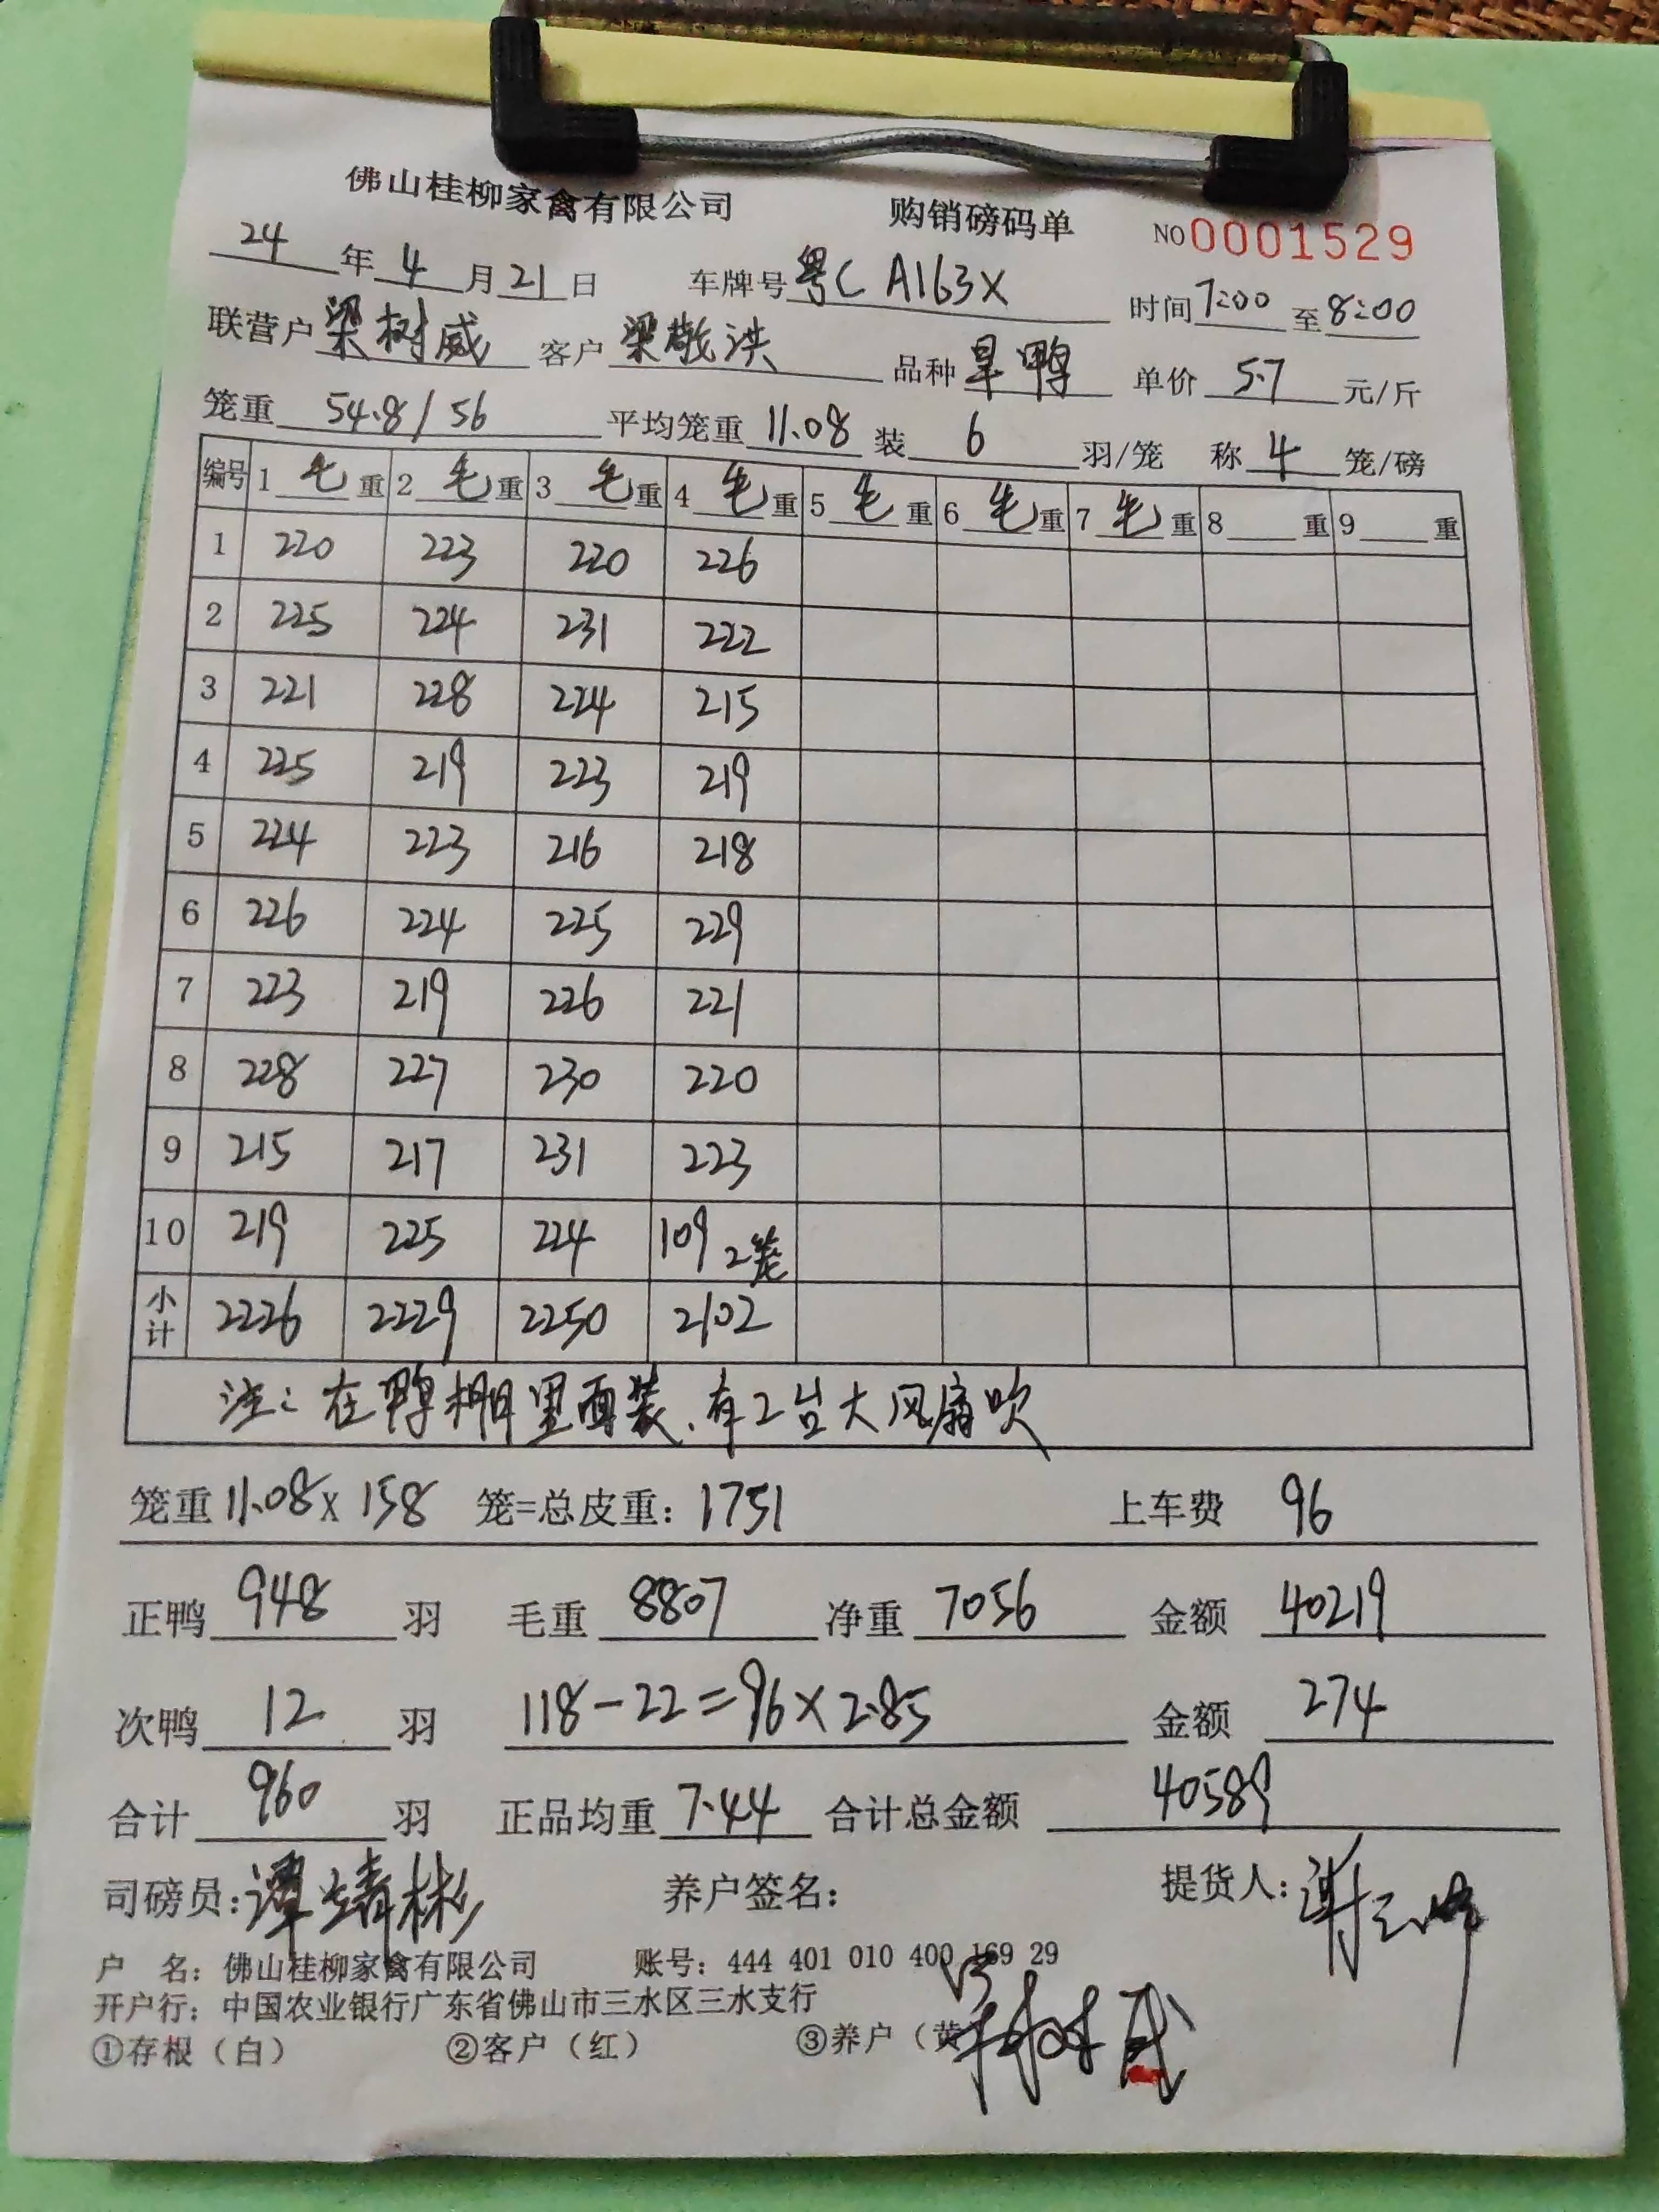 佛山桂柳家禽有限公司 购销磅码单 NO 0001529
24年4月21日 车牌号 粤C A163X 时间 7:00 至 8:00
联营户 梁树威 客户 梁敬洪 品种 旱鸭 单价 5.7 元/斤
笼重 54.8/56 平均笼重 11.08 装 6 羽/笼 称 4 笼/磅
编号 1 毛 重 2 毛 重 3 毛 重 4 毛 重 5 毛 重 6 毛 重 7 毛 重 8 重 9 重
1 220 223 220 226
2 225 224 231 222
3 221 228 224 215
4 225 219 223 219
5 224 223 216 218
6 226 224 225 229
7 223 219 226 221
8 228 227 230 220
9 215 217 231 223
10 219 225 224 109 2笼
小计 2226 2229 2250 2102
注:在鸭棚里面装、有2台大风扇吹
笼重 11.08 x 158 笼=总皮重: 1751 上车费 96
正鸭 948 羽 毛重 8807 净重 7056 金额 40219
次鸭 12 羽 118-22=96×2.85 金额 274
合计 960 羽 正品均重 7.44 合计总金额 40589
司磅员: 谭靖彬 养户签名: 提货人:
户 名: 佛山桂柳家禽有限公司 账号: 444 401 010 400 169 29
开户行: 中国农业银行广东省佛山市三水区三水支行
①存根(白) ②客户(红) ③养户(黄